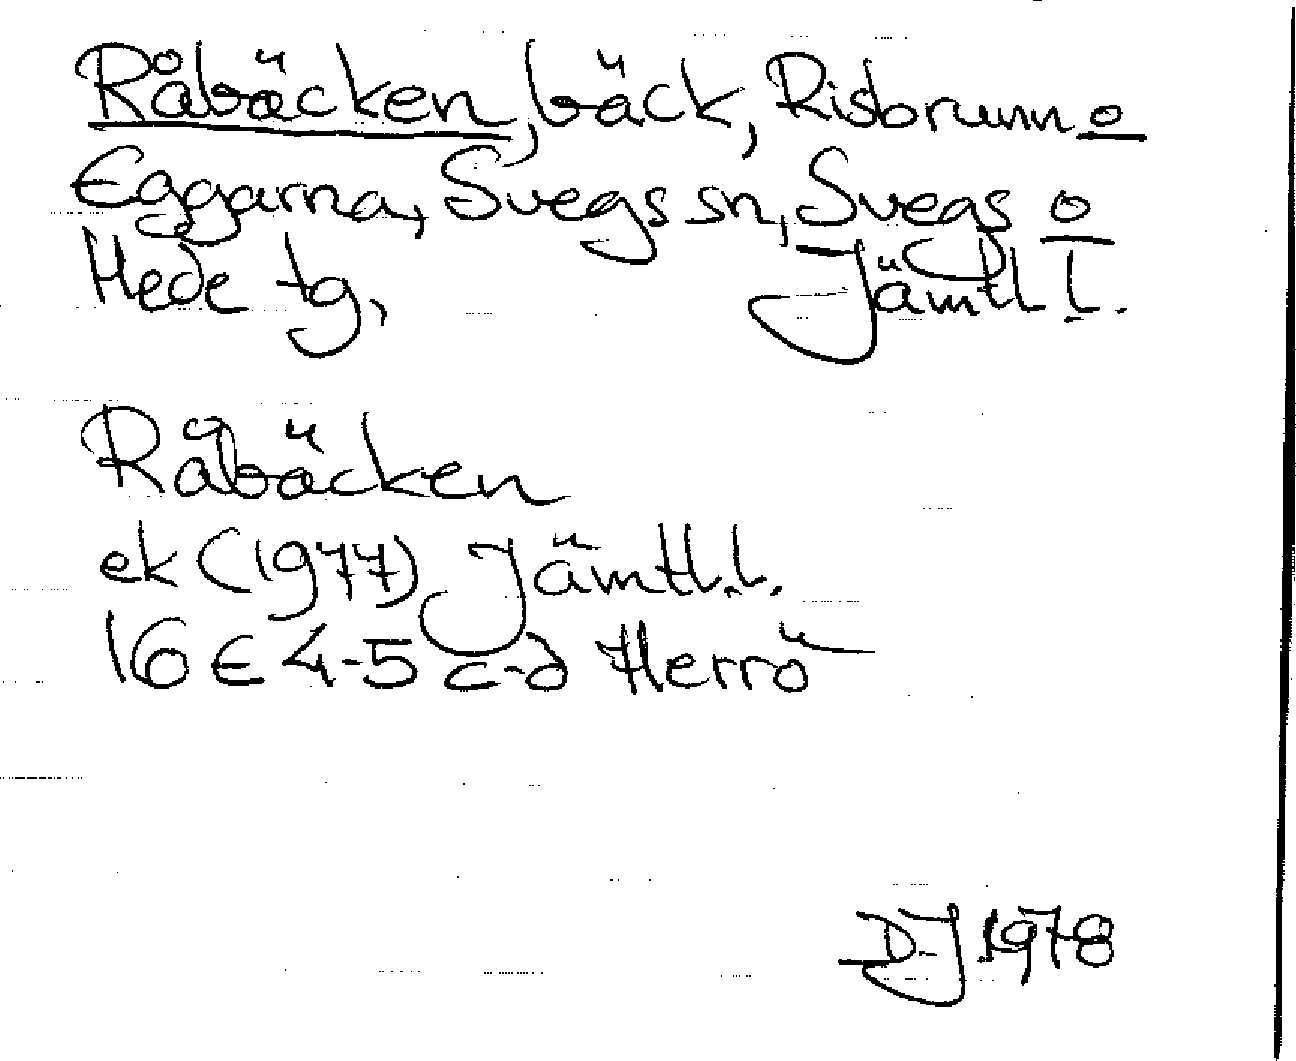 Råbäcken, bäck, Risbrunn o
Eggarna, Svegs sn, Svegs o
Hede tg, Jämtl l.
Råbäcken
ek (1977) Jämtl.l.
16 E 4-5 c-d Herrö
DJ 1978